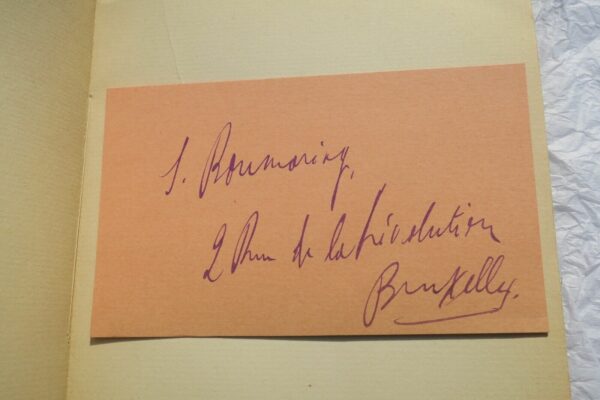 S. Roumoring,
2 Rue de la Révolution
Bruxelles.